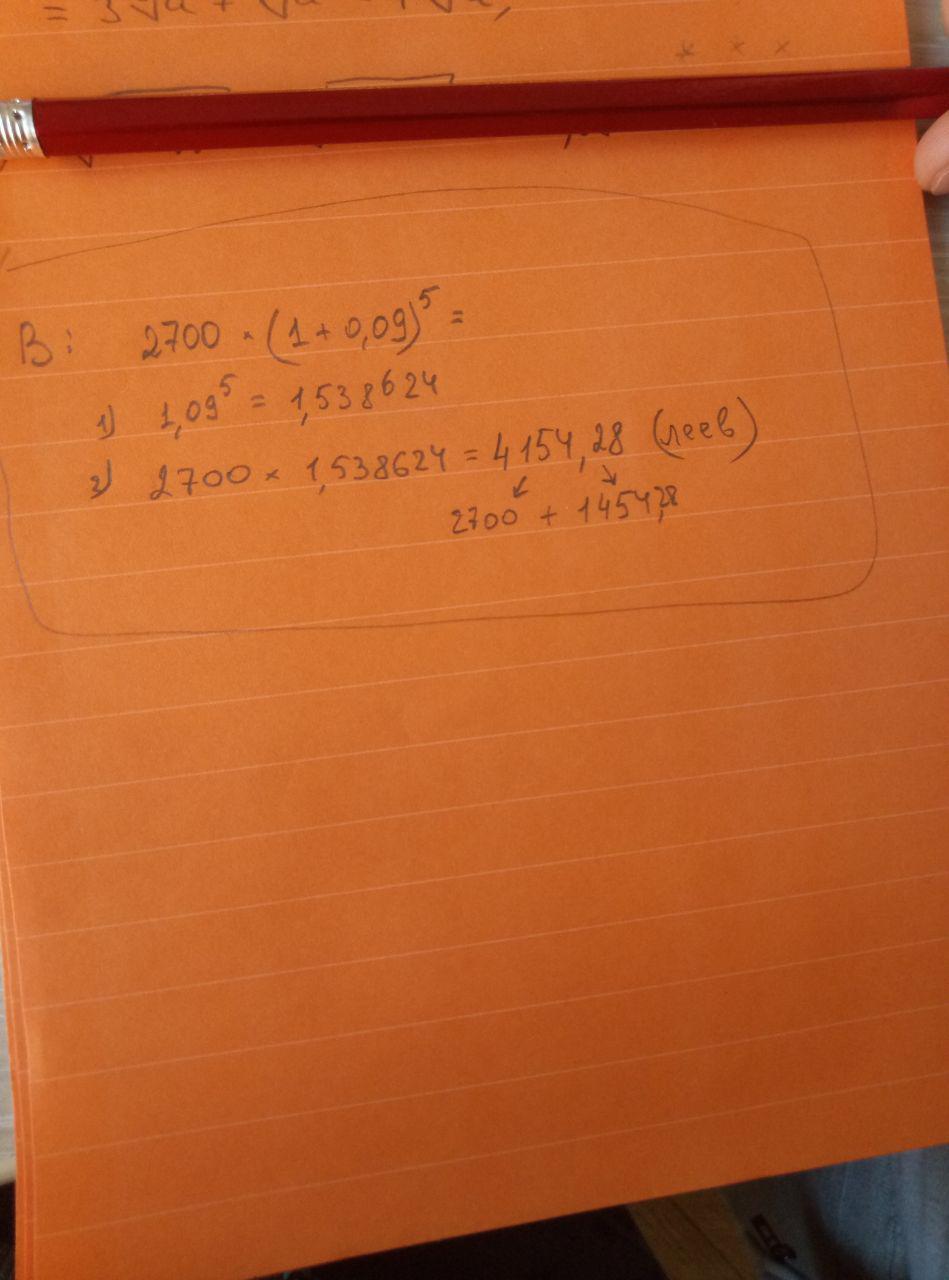 * * *
В: 2700 × (1 + 0,09)⁵ =
1) 1,09⁵ = 1,538624
2) 2700 × 1,538624 = 4154,28 (леев)
↙ ↘
2700 + 1454,28